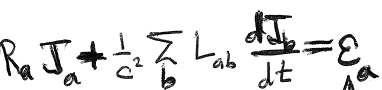 R_a J_a + \frac{1}{c^2} \sum_b L_{ab} \frac{dJ_b}{dt} = \mathcal{E}_a